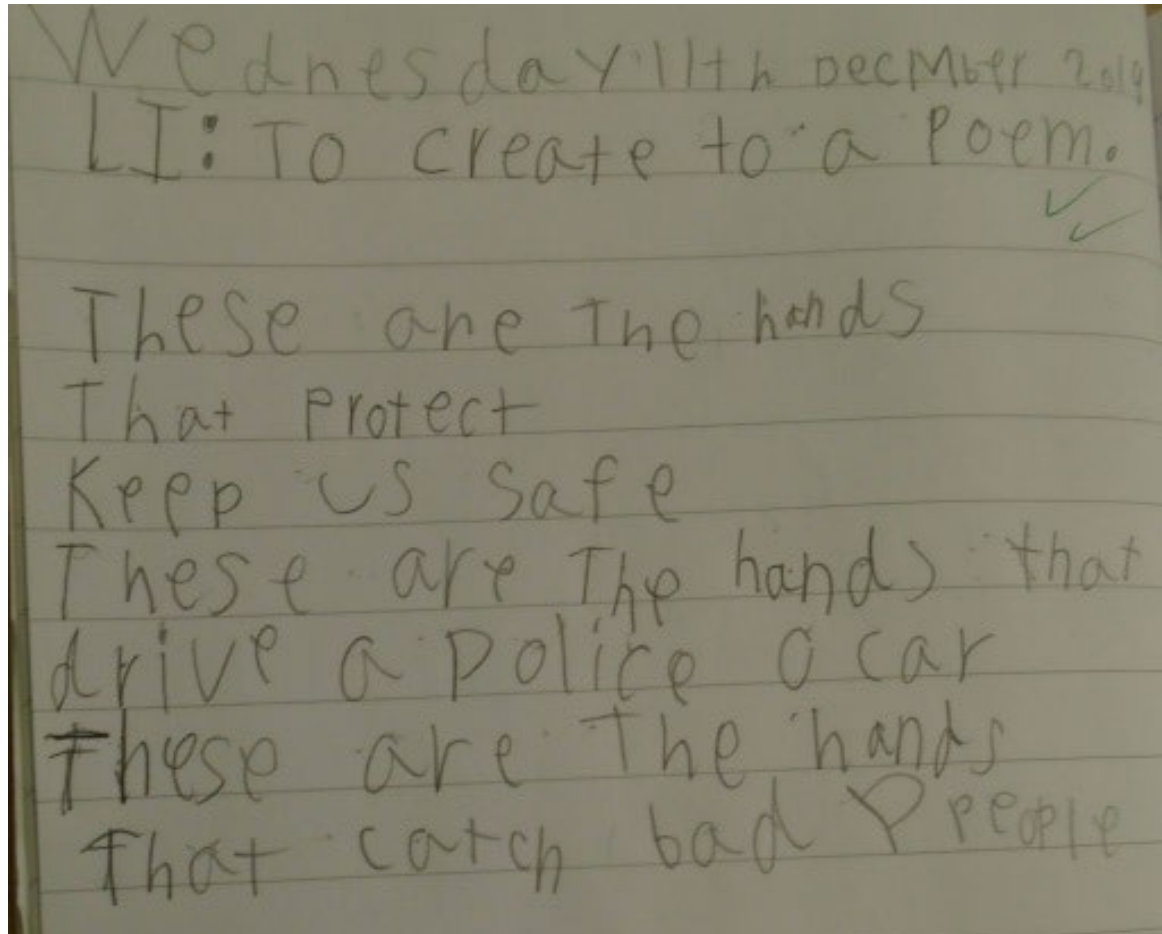 Wednesday 11th Decmber 2019
LI: To create to a Poem.
These are The hands
That Protect
Keep us safe
These are The hands that
drive a police a car
These are The hands
That catch bad P People